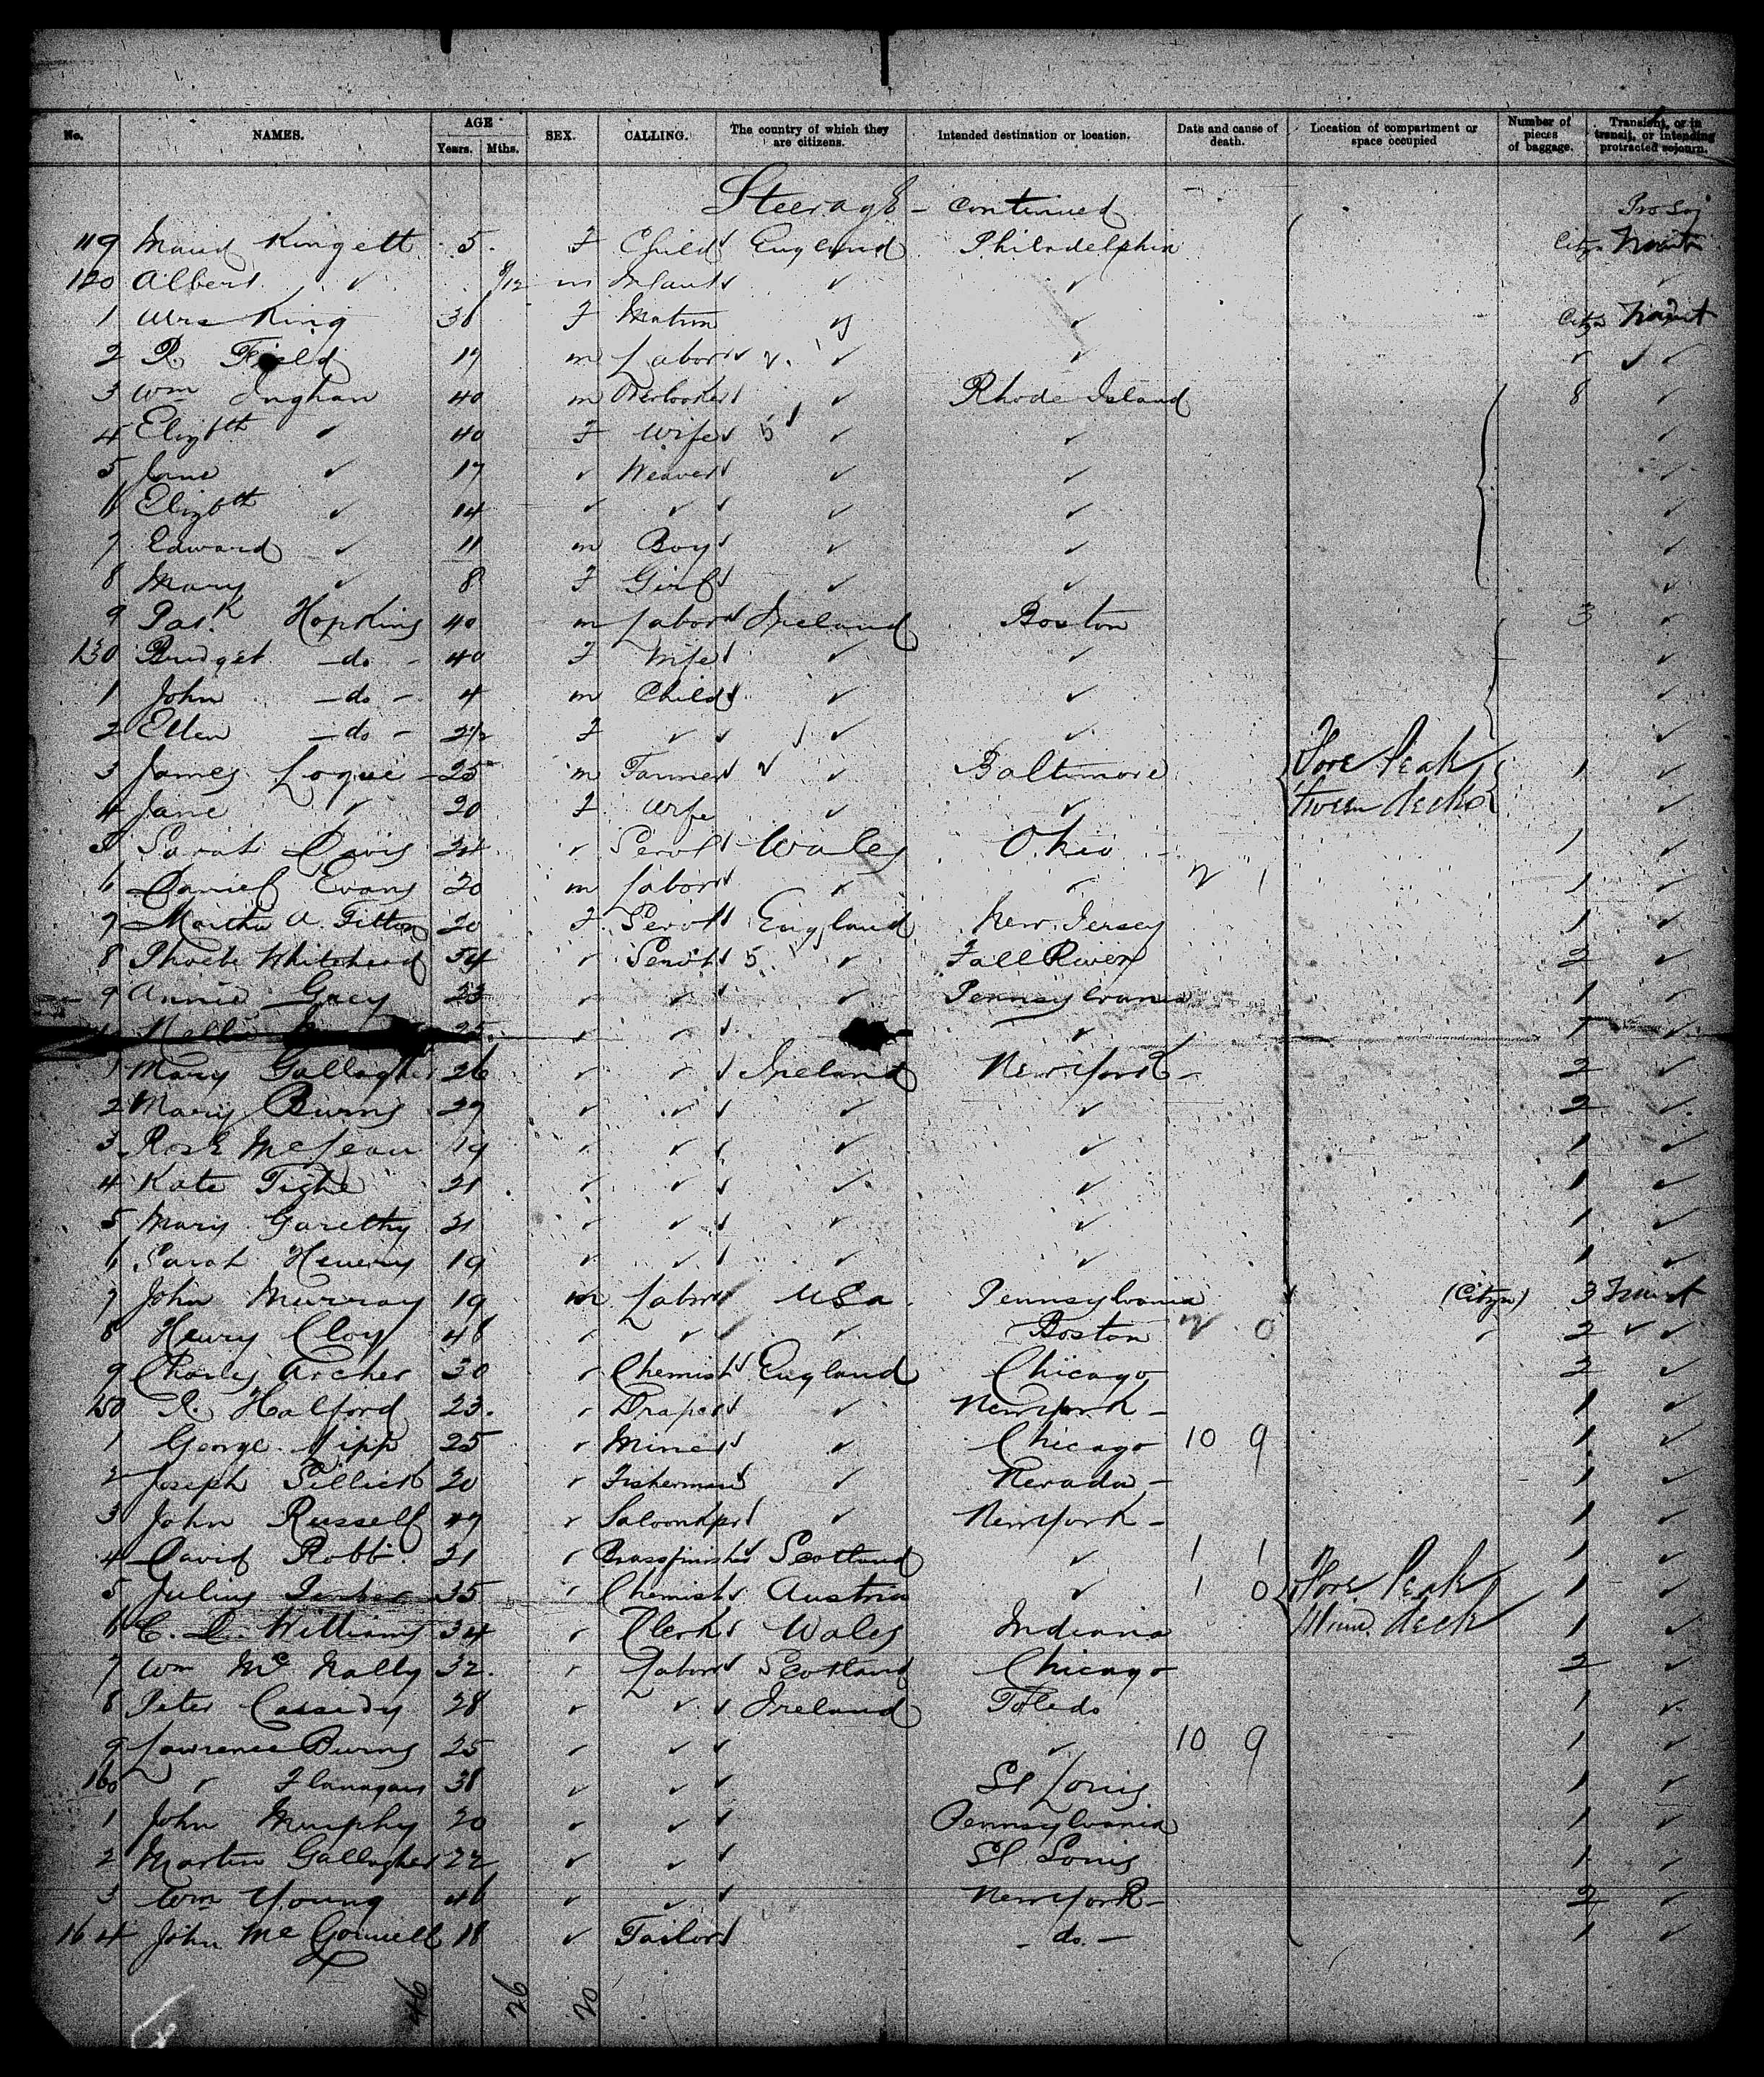 No. NAMES. AGE Years. Mths. SEX. CALLING. The country of which they are citizens. Intended destination or location. Date and cause of death. Location of compartment or space occupied Number of pieces of baggage. Transient, or in transit, or intending protracted sojourn.
Steerage - continued Pro Soj
119 Maud Kingett 5. F Child England Philadelphia Citzn
120 Albert ✓ 9/12 m Infant ✓ ✓ ✓
1 Mrs King F Matron ✓ Citzn
2 R. Field 19 m Labor ✓ ✓ ✓ ✓ ✓
3 Wm Ingham 40 m Overlooker ✓ Rhode Island 8 ✓
4 Elizbth ✓ 40 F Wife 5 ✓ ✓ ✓
5 Jane ✓ 17 ✓ Weaver ✓ ✓ ✓
6 Elizbth ✓ 14 ✓ ✓ ✓ ✓ ✓
7 Edward ✓ 11 m Boy ✓ ✓ ✓
8 Mary ✓ 8 F Girl ✓ ✓ ✓
9 Patk Hopkins 40 m Labor Ireland Boston 3 ✓
130 Bridget - do - 40 F Wife ✓ ✓ ✓
1 John - do - 4 m Child ✓ ✓ ✓
2 Ellen - do - F ✓ ✓ ✓ ✓
3 James Logue 25 m Farmer ✓ Baltimore Fore Peak 1 ✓
4 Jane ✓ 20 F Wife ✓ ✓ tween decks ✓
5 Sarah Davis Servt Wales Ohio 1 ✓
6 Daniel Evans 20 m Labor ✓ ✓ 1 ✓
7 Martha A. Fitton 20 F Servt England New Jersey 1 ✓
8 Phoebe Whitehead 54 ✓ Servt 5 ✓ Fall River 2 ✓
9 Annie Guey 23 ✓ ✓ ✓ Pennsylvania 1 ✓
Nellie 25 ✓ ✓ ✓ 1 ✓
1 Mary Gallagher 26 ✓ ✓ Ireland New York - 2 ✓
2 Mary Burns 27 ✓ ✓ ✓ ✓ 2 ✓
3 Rose McLean 19 ✓ ✓ ✓ ✓ 1 ✓
4 Kate Tighe 21 ✓ ✓ ✓ ✓ 1 ✓
5 Mary Garethy 21 ✓ ✓ ✓ ✓ 1 ✓
6 Sarah Henery 19 ✓ ✓ ✓ ✓ 1 ✓
7 John Murray 19 m Labor USa Pennsylvania (Citzn) 3
8 Henry Cloy 48 ✓ ✓ ✓ Boston 0 2 ✓ ✓
9 Charles Archer 30 ✓ Chemist England Chicago 2 ✓
150 R. Halford 23. ✓ Draper ✓ New York - 1 ✓
1 George Vipp 25 ✓ Miner ✓ Chicago 10 9 1 ✓
2 Joseph Sellick 20 ✓ Fisherman ✓ Nevada - 1 ✓
3 John Russell 47 ✓ Saloonkpr ✓ New York - 1 ✓
4 David Robb 21 ✓ Brassfinisher Scotland ✓ 1 1 1 ✓
5 Julius 35 ✓ Chemist Austria ✓ 1 0 Fore Peak 1 ✓
6 C. D. Williams 34 ✓ Clerk Wales Indiana deck 1 ✓
7 Wm McNally 32. ✓ Labor Scotland Chicago 2 ✓
8 Peter Cassidy 28 ✓ ✓ Ireland Toledo 1 ✓
9 Lawrence Burns 25 ✓ ✓ ✓ 10 9 1 ✓
160 ✓ Flanagan 38 ✓ ✓ St Louis 1 ✓
1 John Murphy 20 ✓ ✓ Pennsylvania 1 ✓
2 Martin Gallagher 22 ✓ ✓ St Louis 1 ✓
3 Wm Young 46 ✓ ✓ New York - 2 ✓
164 John McGonnell 18 ✓ Tailor - do. - 1 ✓
46 26 20